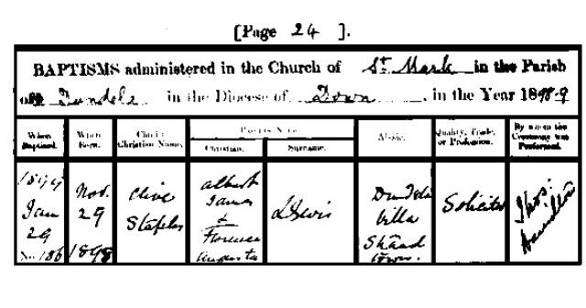 [Page 24 ].
BAPTISMS administered in the Church of St Mark in the Parish
of Dundela in the Diocese of Down, in the Year 1898-9
When Baptized.
When Born.
Child's Christian Name.
Parents Name
Christian.
Surname.
Abode.
Quality, Trade, or Profession.
By whom the Ceremony was Performed.
1899
Jan
29
No. 186
Nov.
29
1898
Clive
Staples
Albert
James
&
Florence
Augusta
Lewis
Dundela
Villa
Strand
town.
Solicitor
Thos:
Hamilton